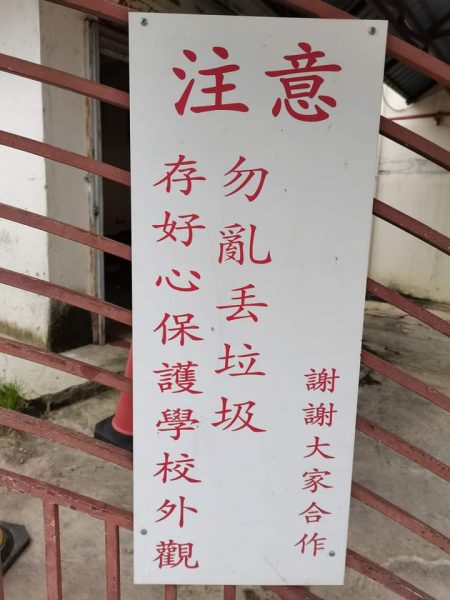 注意
存好心保護學校外觀
勿亂丟垃圾
謝謝大家合作